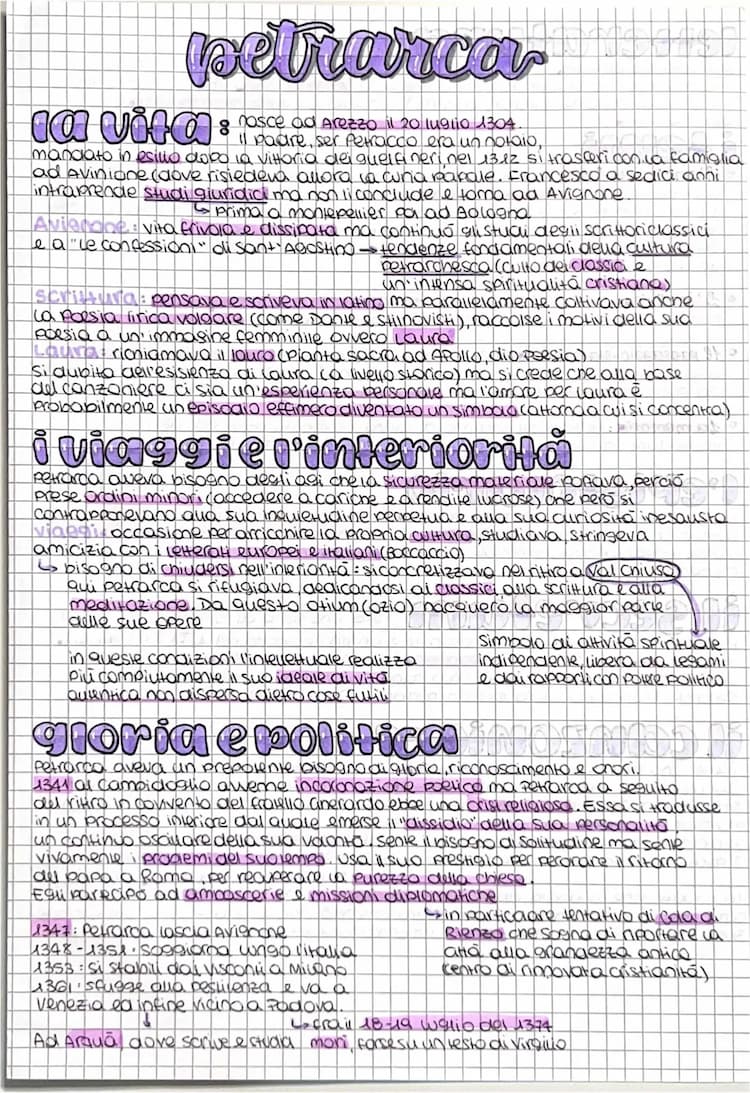 petrarca
la vita: nasce ad Arezzo il 20 luglio 1304.
Il padre, ser Petracco era un notaio,
mandato in esilio dopo la vittoria dei guelfi neri, nel 1312 si trasferì con la famiglia
ad Avinione (dove risiedeva allora la curia papale. Francesco a sedici anni
intraprende studi giuridici ma non li conclude e torna ad Avignone.
↳ prima a Montepellier poi ad Bologna
Avignone: vita frivola e dissipata ma continuò gli studi degli scrittori classici
e a "le confessioni" di Sant'Agostino → tendenze fondamentali della cultura
petrarchesca (culto dei classici e
un'intensa spiritualità cristiana)
scrittura: pensava e scriveva in latino ma parallelamente coltivava anche
la poesia lirica volgare (come Dante e stilnovisti), raccolse i motivi della sua
poesia a un'immagine femminile ovvero Laura
Laura: richiamava il lauro (pianta sacra ad Apollo, dio poesia)
Si dubita dell'esistenza di Laura (a livello storico) ma si crede che alla base
del canzoniere ci sia un'esperienza personale ma l'amore per Laura è
probabilmente un episodio effimero diventato un simbolo (attorno a cui si concentra)
i viaggi e l'interiorità
Petrarca aveva bisogno degli agi che la sicurezza materiale portava, perciò
prese ordini minori (accedere a cariche e a rendite lucrose) che però si
contrapponevano alla sua inquietudine perpetua e alla sua curiosità inesausta
viaggi: occasione per arricchire la propria cultura, studiava, stringeva
amicizia con i letterati europei e italiani (Boccaccio)
↳ bisogno di chiudersi nell'interiorità: si concretizzava nel ritiro a Val Chiusa
qui Petrarca si rifugiava, dedicandosi ai classici, alla scrittura e alla
meditazione. Da questo otium (ozio) nacquero la maggior parte
delle sue opere
simbolo di attività spirituale
indipendente, libera da legami
e dai rapporti con potere politico
in queste condizioni l'intellettuale realizza
più compiutamente il suo ideale di vita
autentica non dispersa dietro cose futili
gloria e politica
Petrarca aveva un prepotente bisogno di gloria, riconoscimento e onori.
1341 al campidoglio avvenne incoronazione poetica ma Petrarca a seguito
del ritiro in convento del fratello Gherardo ebbe una crisi religiosa. Essa si tradusse
in un processo interiore dal quale emerse il "dissidio" della sua personalità,
un continuo oscillare della sua volontà. Sente il bisogno di solitudine ma sente
vivamente i problemi del suo tempo. Usa il suo prestigio per perorare il ritorno
del papa a Roma, per recuperare la purezza della chiesa.
Egli partecipò ad ambascerie e missioni diplomatiche
↳ in particolare tentativo di Cola di
Rienzo che sogna di riportare la
città alla grandezza antica
(centro di rinnovata cristianità)
1347: Petrarca lascia Avignone
1348-1351: soggiorna lungo l'Italia
1353: si stabilì dai Visconti a Milano
1361: sfugge alla pestilenza e va a
Venezia ed infine vicino a Padova.
↳ fra il 18-19 luglio del 1374
Ad Arquà, dove scrive e studia morì, forse su un testo di Virgilio